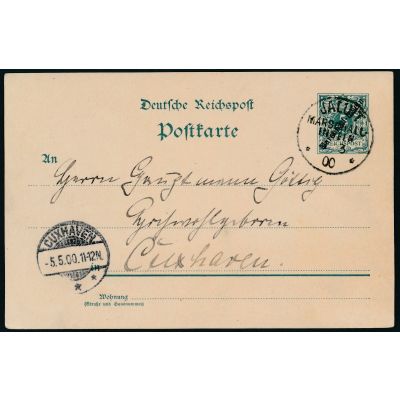 Deutsche Reichspost
Postkarte
JALUIT
MARSCHALL
INSELN
3
00
An
Herrn Hauptmann Göttig
Hochwohlgeboren
Cuxhaven.
CUXHAVEN
-5.5.00.11-12N.
Wohnung
(Straße und Hausnummer)